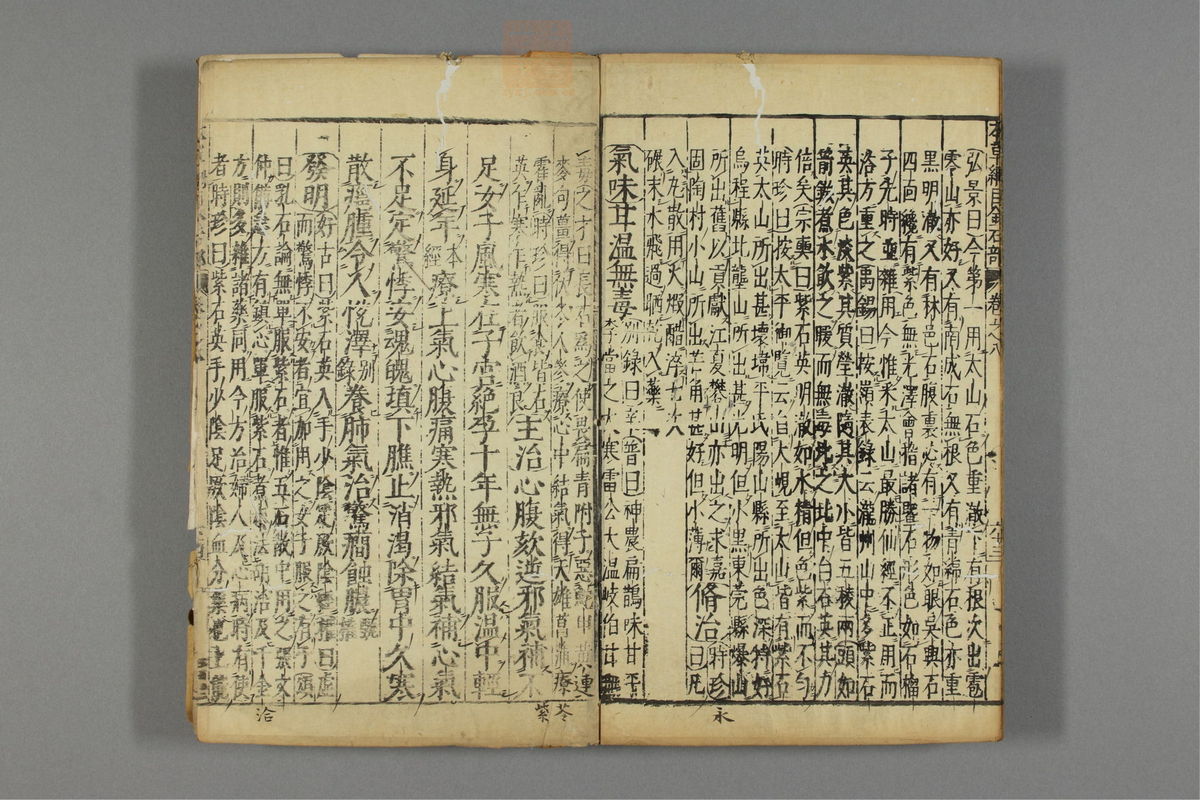 本草綱目金石部 卷之八
弘景曰今第一用太山石色重澈下有根次出雹
零山亦好又有南成石無根又有青綿石色亦重
黑明澈又有林邑石腹裏必有一物如眼吳興石
四面纔有紫色無光澤會稽諸暨石形色如石榴
子先時並雜用今惟采太山最勝仙經不正用而
洛方重之禹錫曰按嶺表錄云瀧州山中多紫石
英其色淡紫其質瑩澈隨其大小皆五稜兩頭如
箭鏃煮水飲之暖而無毒比之北中白石英其力
倍矣宗奭曰紫石英明澈如水精但色紫而不匀
時珍曰按太平御覽云自大峴至太山皆有紫石
英太山所出甚瓌瑋平氏陽山縣所出色深特好
烏程縣北壟山所出甚光明但小黑東莞縣爆山
所出舊以貢獻江夏礬山亦出之永嘉
固陶村小山所出芒角甚好但小薄爾 脩治 時珍曰凡
入丸散用火煅醋淬七次
碾末水飛過晒乾入藥
氣味甘溫無毒 別錄曰辛普曰神農扁鵲味甘平
李當之大寒雷公大溫岐伯甘無
永
毒之才曰長石為之使畏扁青附子惡鮀甲黃連
麥句薑得茯苓人參療心中結氣得天雄菖蒲療
霍亂時珍曰服食紫石
英乍寒乍熱者飲酒良 主治心腹欬逆邪氣補不
足女子風寒在子宮絕孕十年無子久服溫中輕
身延年本經療上氣心腹痛寒熱邪氣結氣補心氣
不足定驚悸安魂魄填下膲止消渴除胃中久寒
散癰腫令人悅澤別錄養肺氣治驚癇蝕膿甄權
發明 好古曰紫石英入手少陰足厥陰經權曰虛
而驚悸不安者宜加用之女子服之有子頌
曰乳石論無單服紫石者惟五石散中用之張文
仲備急方有鎮心單服紫石煮水法胡洽及千金
方則多雜諸藥同用今方治婦人及心病時有使
者時珍曰紫石英手少陰足厥陰血分藥也上
苓
紫
洽